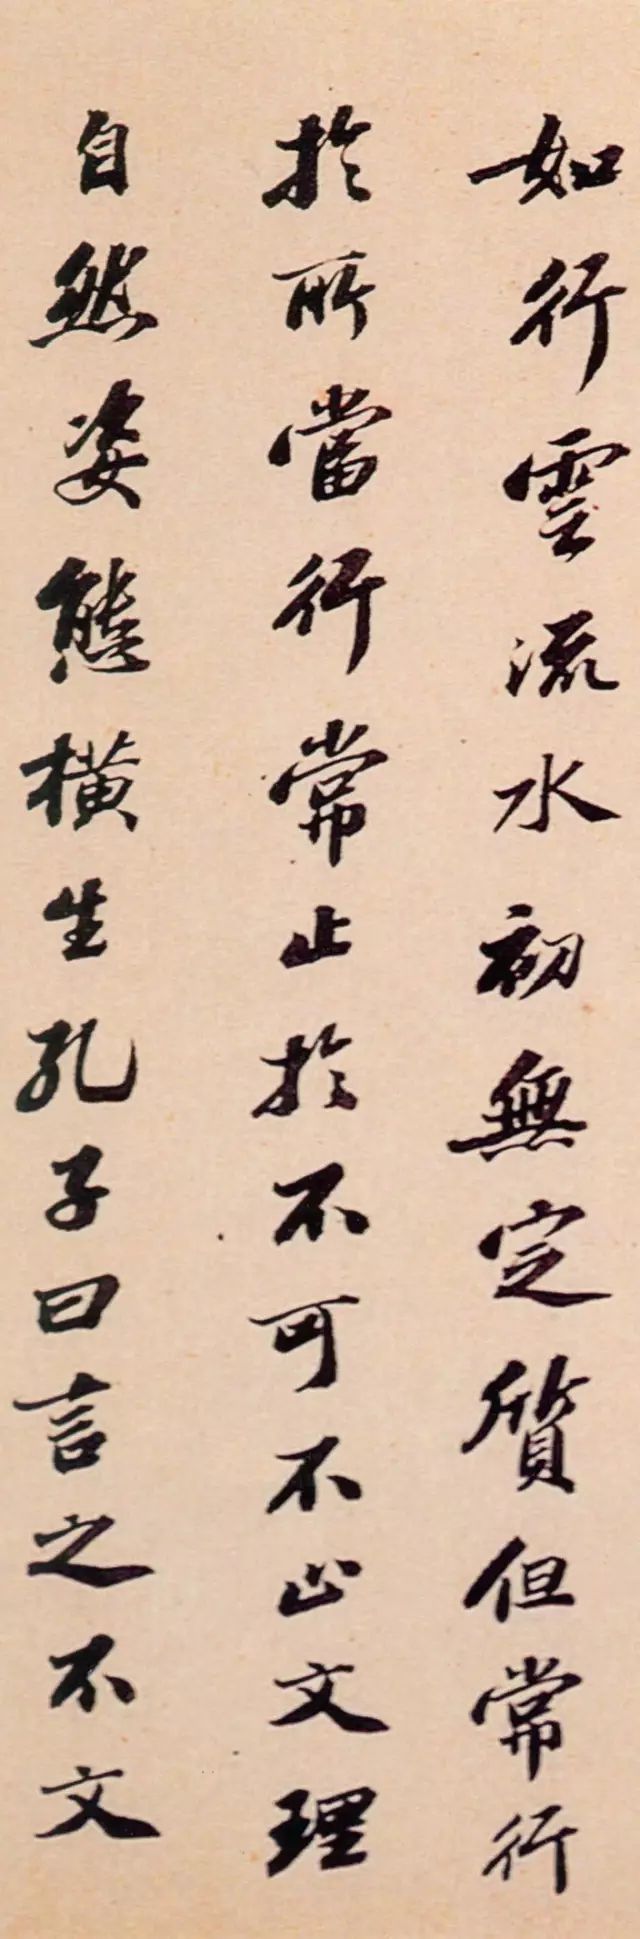 如行雲流水初無定質但常行
於所當行常止於不可不止文理
自然姿態橫生孔子曰言之不文